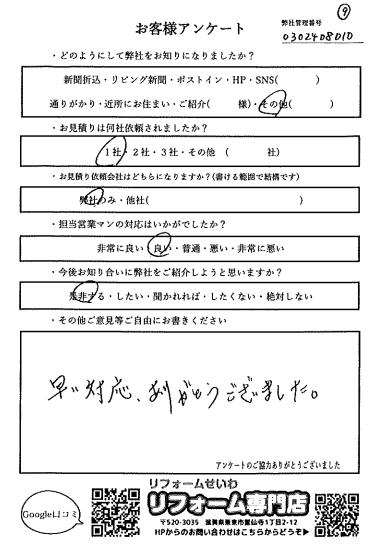 ⑨
お客様アンケート
弊社管理番号
0302408010
・どのようにして弊社をお知りになりましたか?
新聞折込・リビング新聞・ポストイン・HP・SNS( )
通りがかり・近所にお住まい・ご紹介( 様)・その他( )
・お見積りは何社依頼されましたか?
1社・2社・3社・その他 ( 社)
・お見積り依頼会社はどちらになりますか?(書ける範囲で結構です)
弊社のみ・他社( )
・担当営業マンの対応はいかがでしたか?
非常に良い・良い・普通・悪い・非常に悪い
・今後お知り合いに弊社をご紹介しようと思いますか?
是非する・したい・聞かれれば・したくない・絶対しない
・その他ご意見等ご自由にお書きください
早い対応、ありがとうございました。
アンケートのご協力ありがとうございました
Google口コミ
リフォームせいわ
リフォーム専門店
〒520-3035 滋賀県栗東市霊仙寺1丁目2-12
HPからのお問い合わせはこちらからどうぞ▶